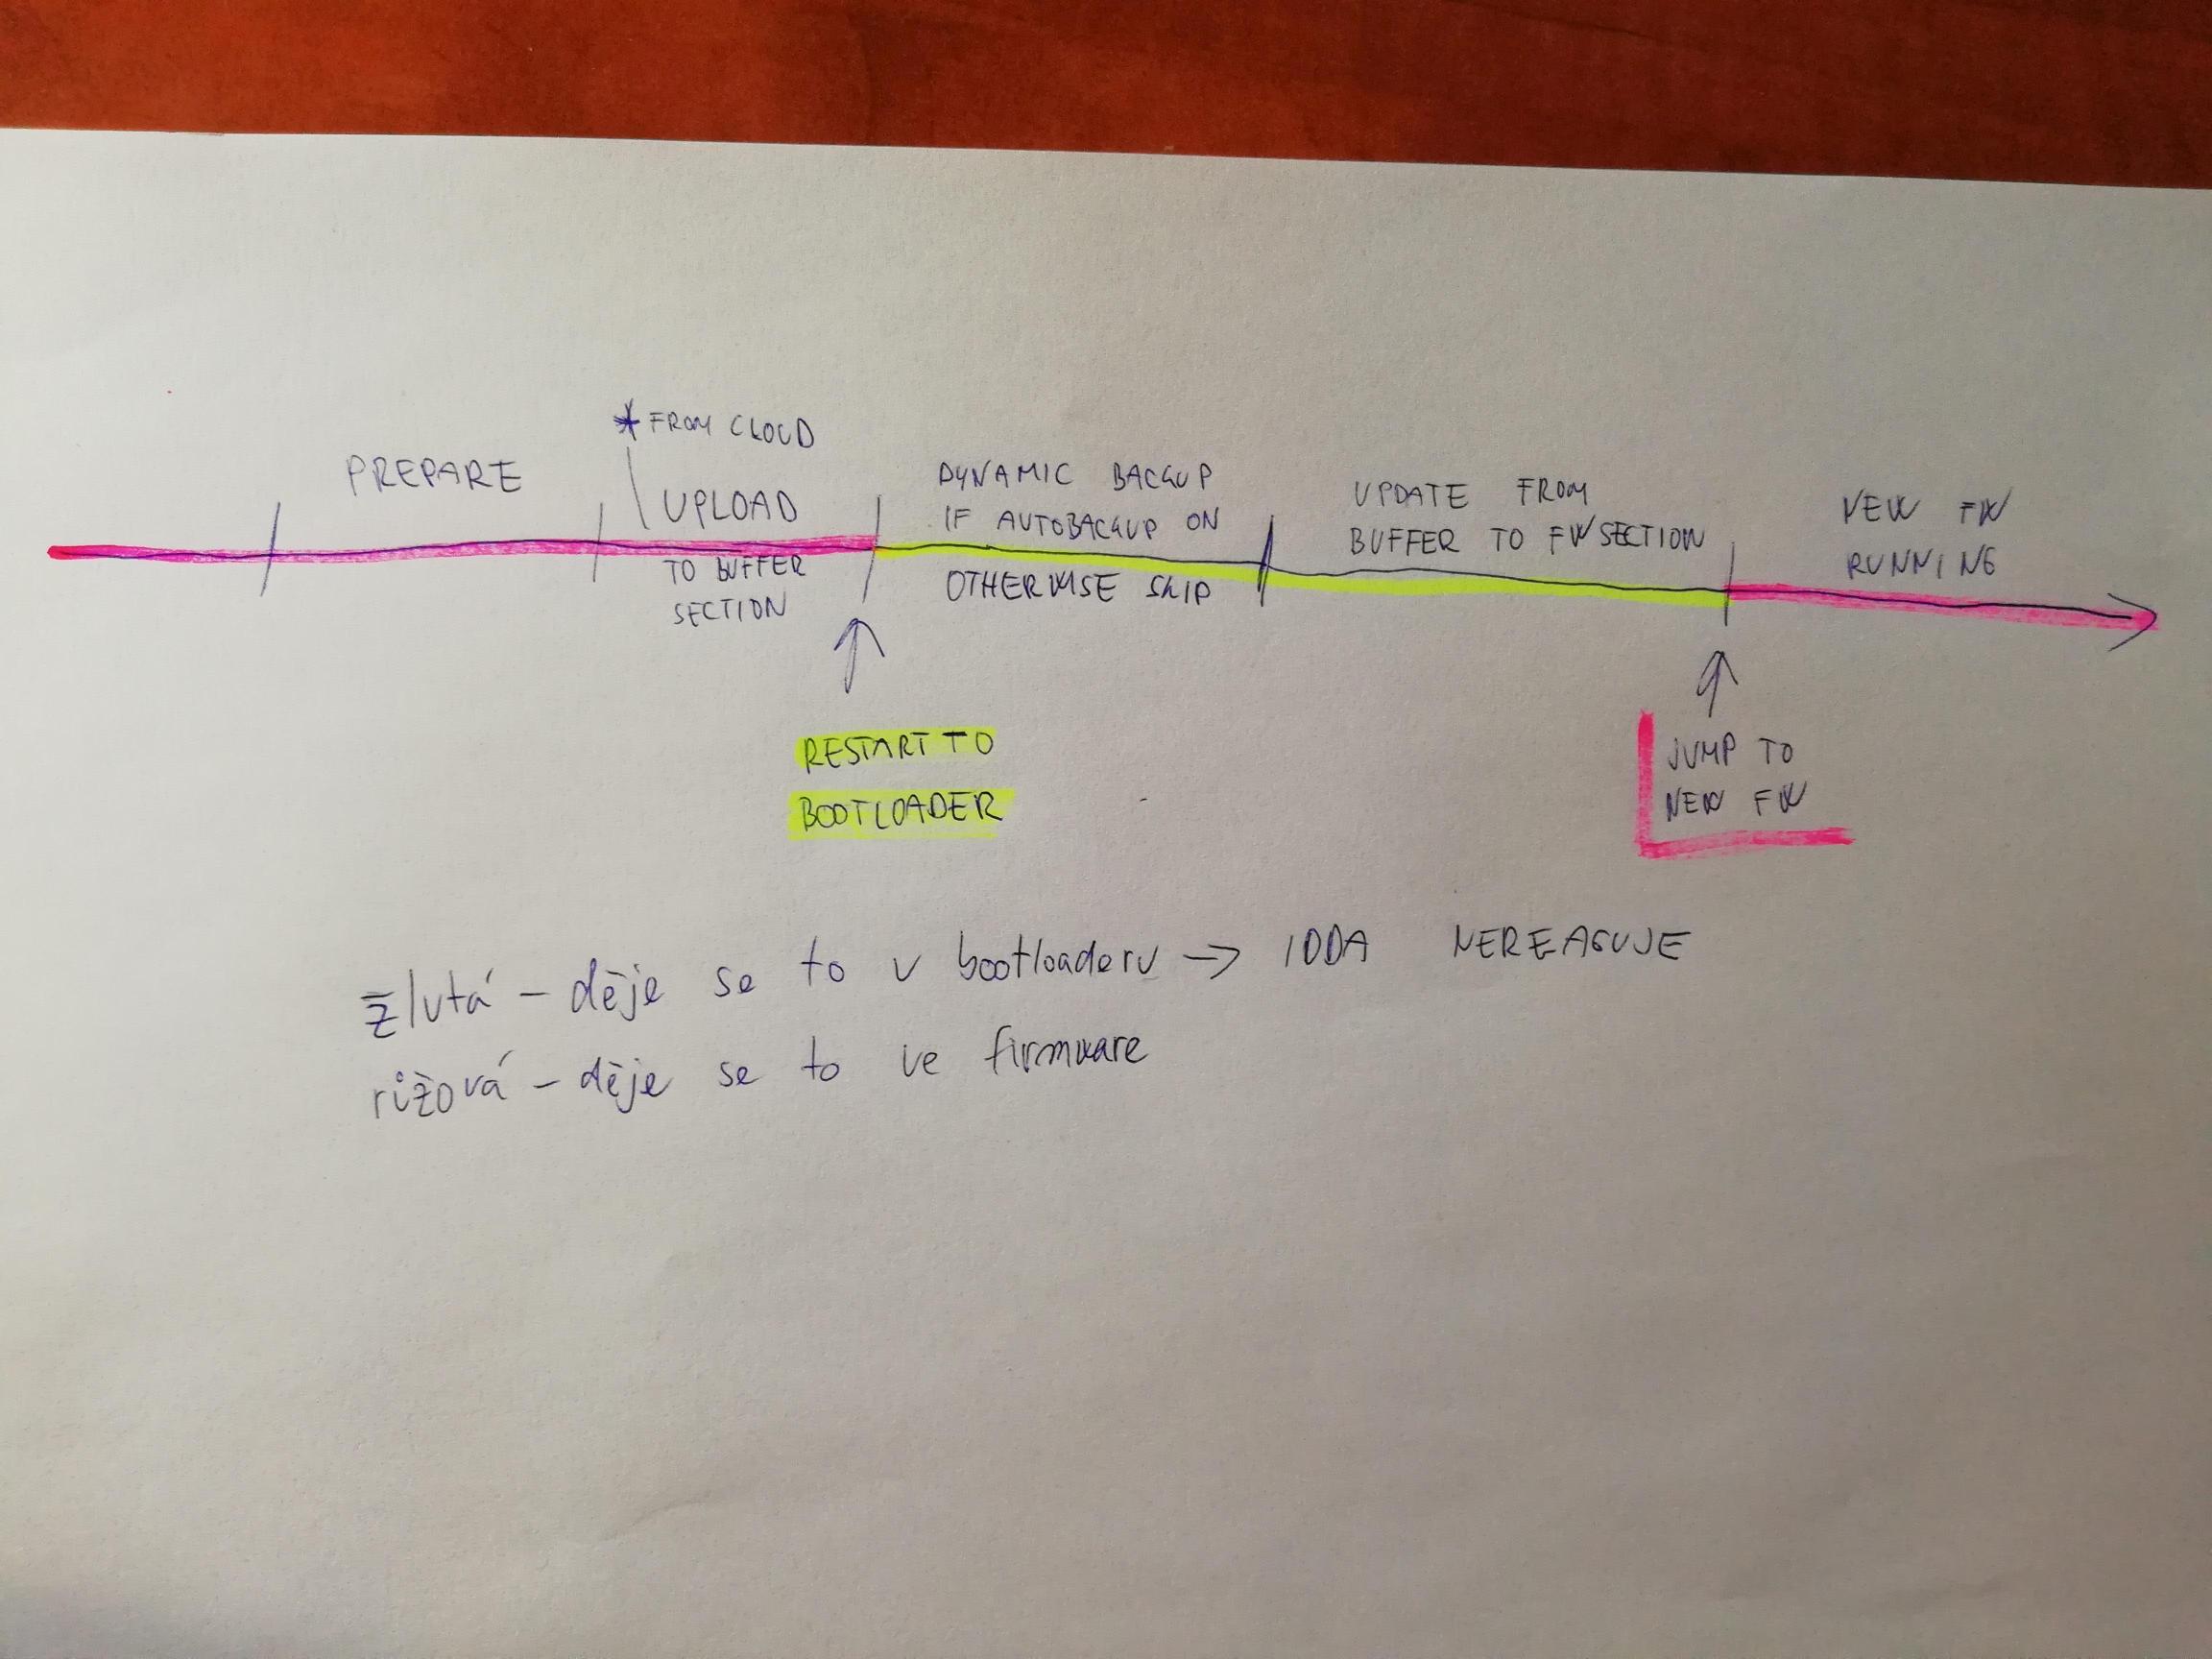 * FROM CLOUD
PREPARE
UPLOAD
TO BUFFER
SECTION
DYNAMIC BACKUP
IF AUTOBACKUP ON
OTHERWISE SKIP
UPDATE FROM
BUFFER TO FW SECTION
NEW FW
RUNNING
RESTART TO
BOOTLOADER
JUMP TO
NEW FW
žlutá - děje se to v bootloaderu → IODA NEREAGUJE
růžová - děje se to ve firmware